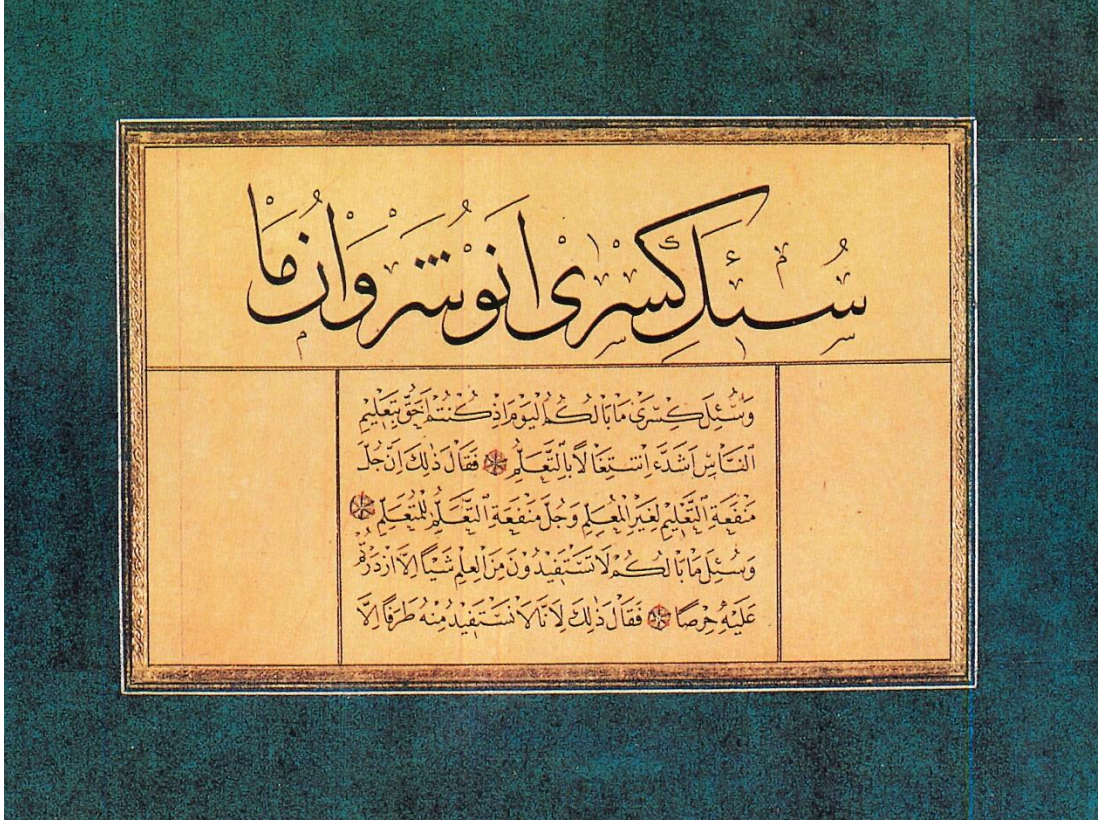 سُئِلَ كِسْرٰى اَنُوشَرْوَانُ مَا
وَسُئِلَ كِسْرٰى مَا بَالُكُمُ الْيَوْمَ اِذْ كُنْتُمْ اَحَقَّ بِتَعْلِيمِ
النَّاسِ اَشَدَّ اِسْتِغَالًا بِالتَّعَلُّمِ فَقَالَ ذٰلِكَ اِنَّ جُلَّ
مَنْفَعَةِ التَّعْلِيمِ لِغَيْرِ الْمُعَلِّمِ وَجُلَّ مَنْفَعَةِ التَّعَلُّمِ لِلْمُتَعَلِّمِ
وَسُئِلَ مَا بَالُكُمْ لَا تَسْتَفِيدُونَ مِنَ الْعِلْمِ شَيْئًا اِلَّا ازْدَدْتُمْ
عَلَيْهِ حِرْصًا فَقَالَ ذٰلِكَ لِاَنَّا لَا نَسْتَفِيدُ مِنْهُ طَرَفًا اِلَّا